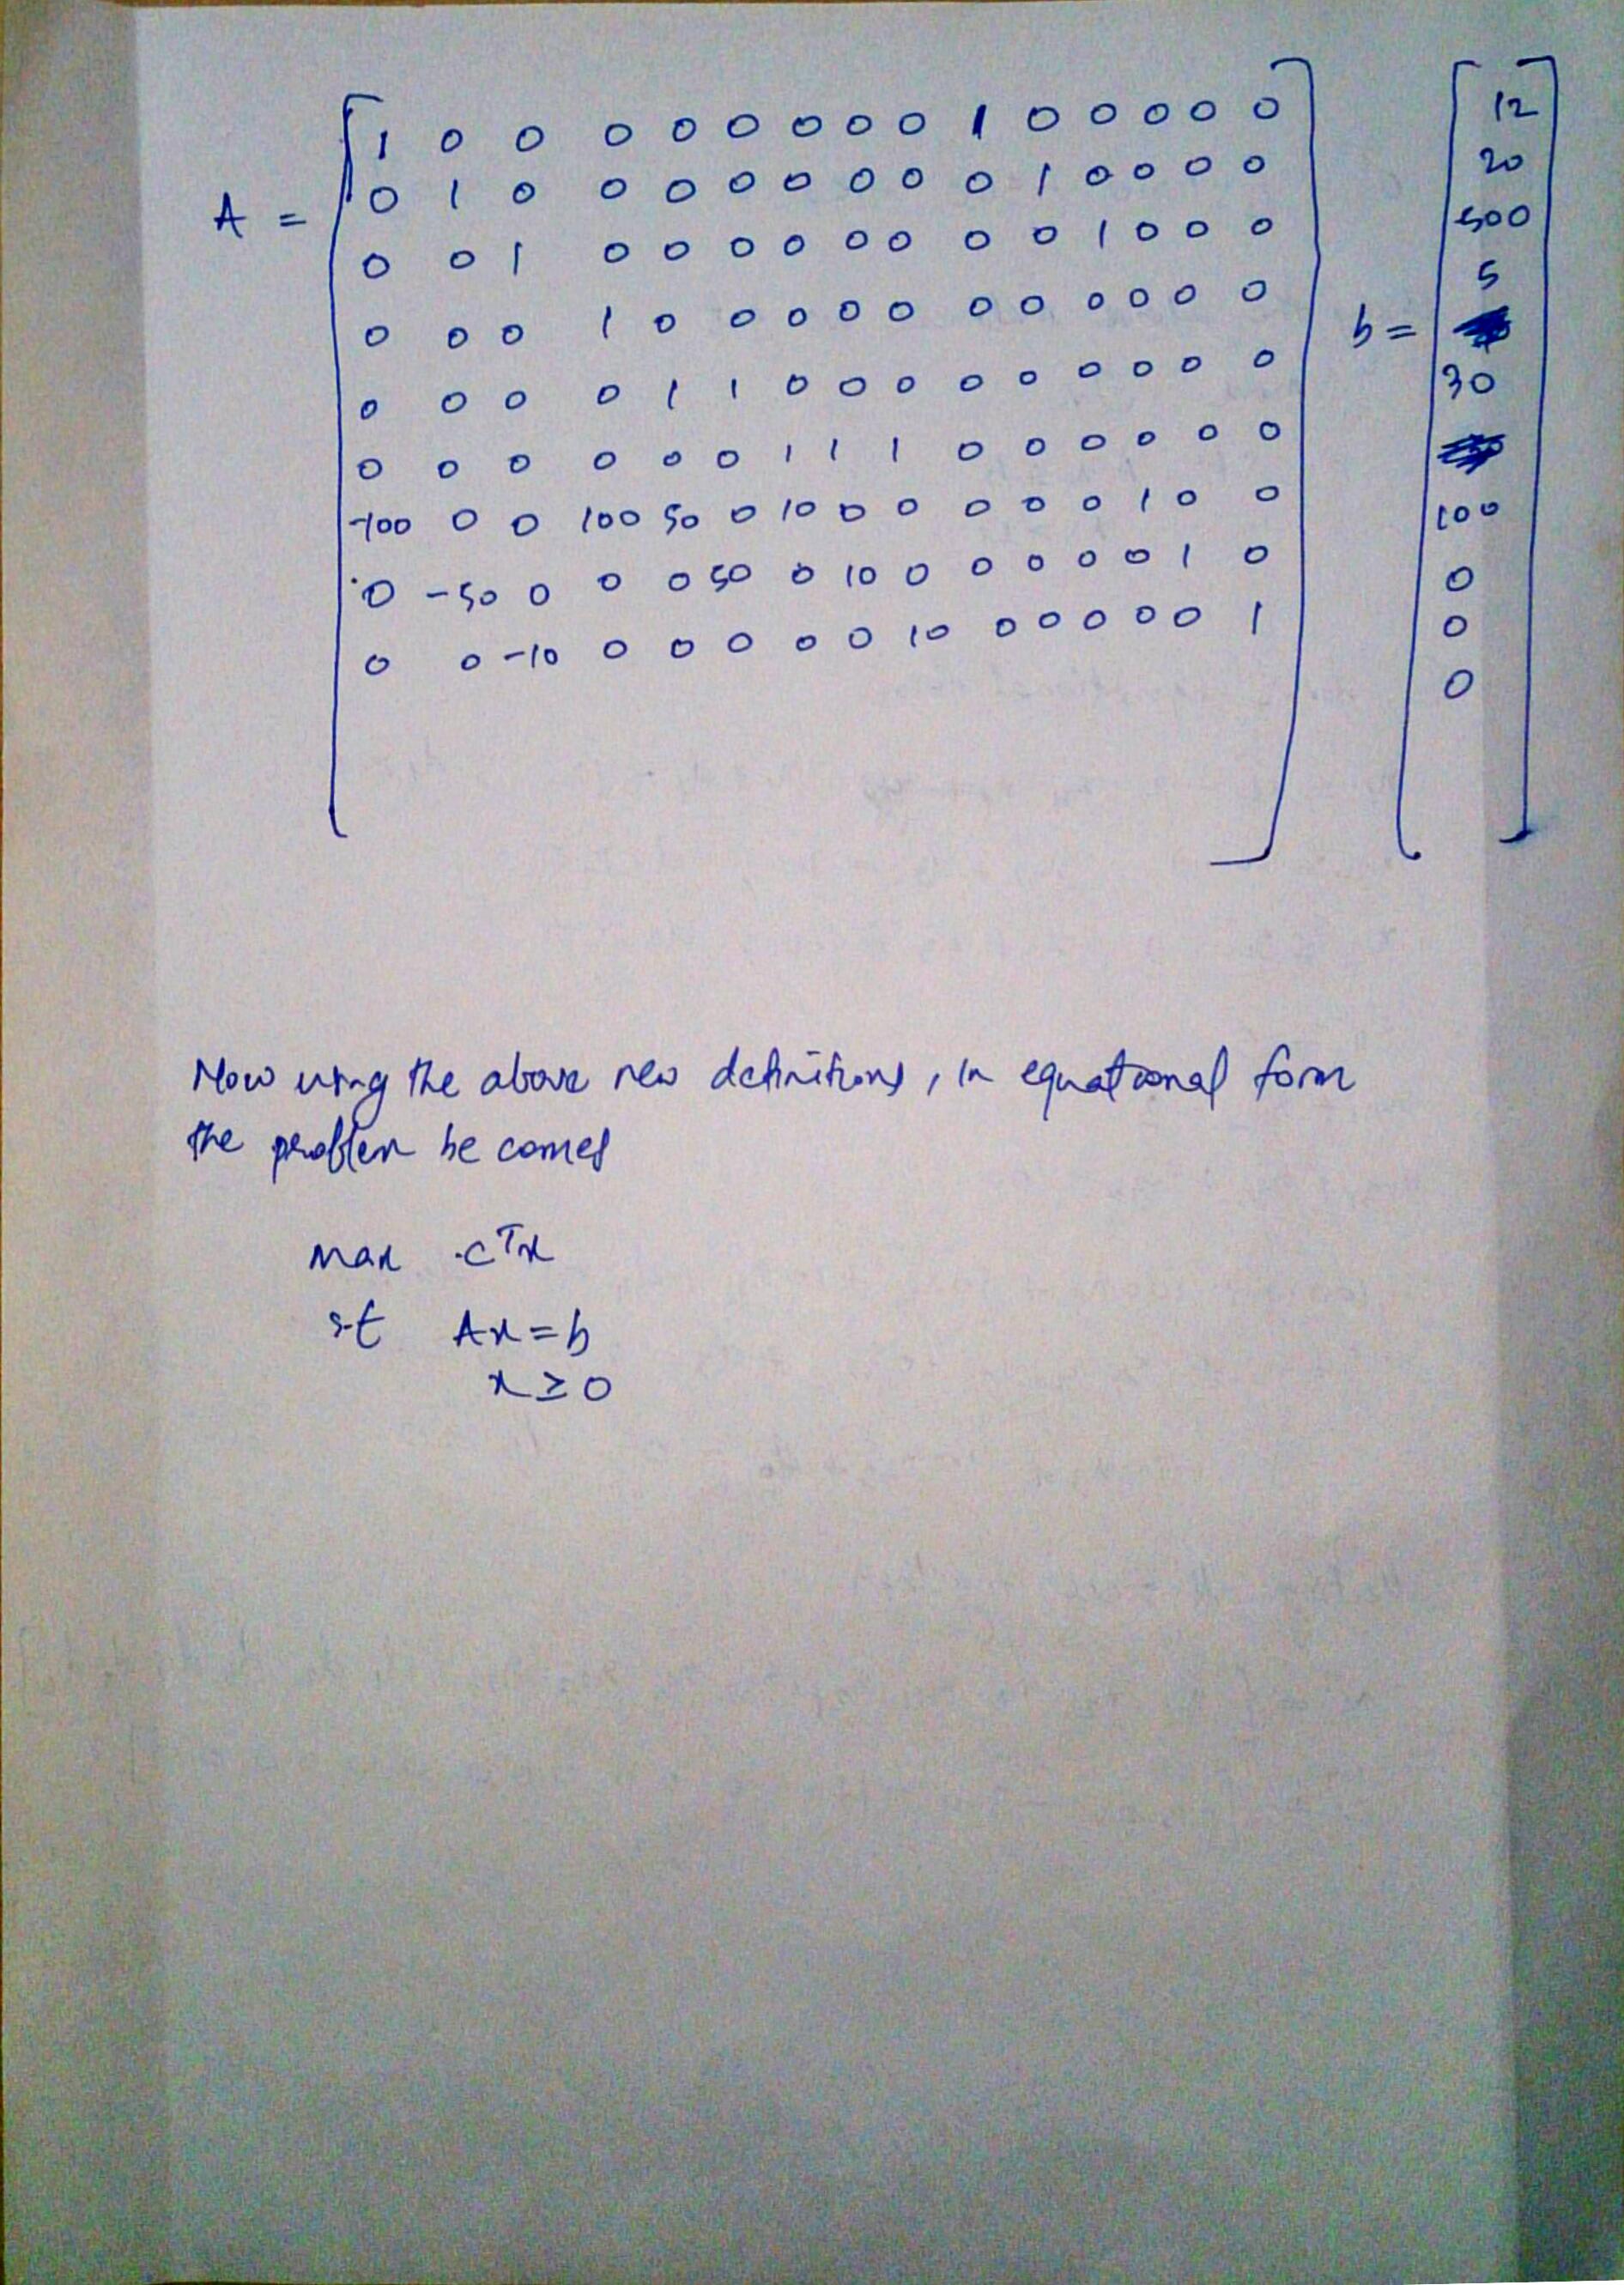 A =
1 0 0 0 0 0 0 0 0 1 0 0 0 0 0
0 1 0 0 0 0 0 0 0 0 1 0 0 0 0
0 0 1 0 0 0 0 0 0 0 0 1 0 0 0
0 0 0 1 0 0 0 0 0 0 0 0 0 0 0
0 0 0 0 1 1 0 0 0 0 0 0 0 0 0
0 0 0 0 0 0 1 1 1 0 0 0 0 0 0
-100 0 0 100 50 0 10 0 0 0 0 0 1 0 0
0 -50 0 0 0 50 0 10 0 0 0 0 0 1 0
0 0 -10 0 0 0 0 0 10 0 0 0 0 0 1
b =
12
20
500
5
30
100
0
0
0
Now using the above new definitions, in equational form
the problem be comes
max c^T x
s.t Ax = b
x ≥ 0